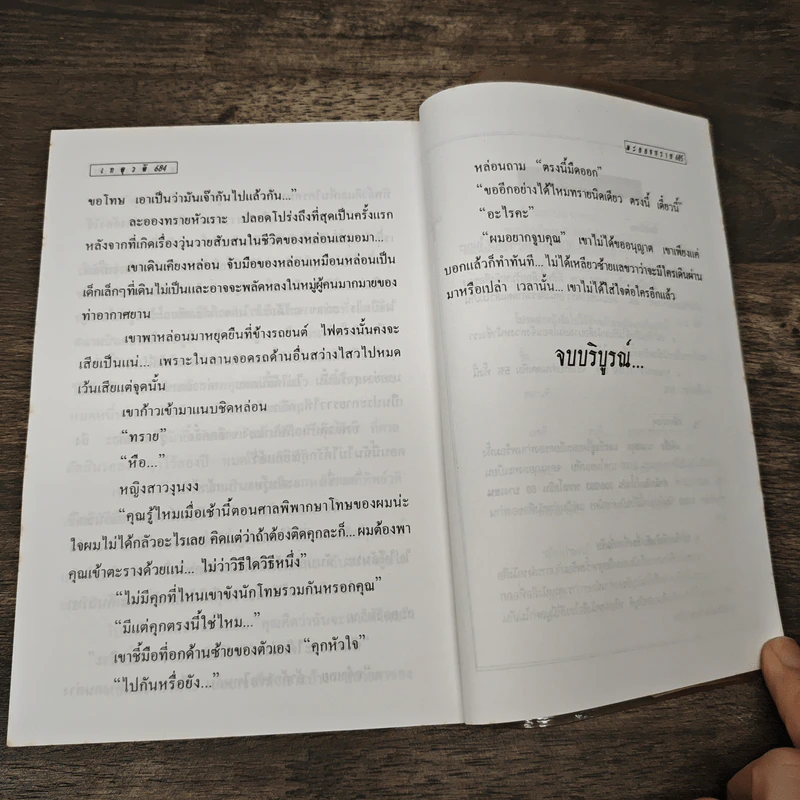 เกตุวดี 684
ขอโทษ เอาเป็นว่ามันเจ๊ากันไปแล้วกัน..."
ละอองทรายหัวเราะ ปลอดโปร่งถึงที่สุดเป็นครั้งแรก
หลังจากที่เกิดเรื่องวุ่นวายสับสนในชีวิตของหล่อนเสมอมา...
เขาเดินเคียงหล่อน จับมือของหล่อนเหมือนหล่อนเป็น
เด็กเล็กๆที่เดินไม่เป็นและอาจจะพลัดหลงในหมู่ผู้คนมากมายของ
ท่าอากาศยาน
เขาพาหล่อนมาหยุดยืนที่ข้างรถยนต์ ไฟตรงนั้นคงจะ
เสียเป็นแน่... เพราะในลานจอดรถด้านอื่นสว่างไสวไปหมด
เว้นเสียแต่จุดนั้น
เขาก้าวเข้ามาแนบชิดหล่อน
"ทราย"
"หือ..."
หญิงสาวงุนงง
"คุณรู้ไหมเมื่อเช้านี้ตอนศาลพิพากษาโทษของผมน่ะ
ใจผมไม่ได้กลัวอะไรเลย คิดแต่ว่าถ้าต้องติดคุกละก็... ผมต้องพา
คุณเข้าตะรางด้วยแน่... ไม่ว่าวิธีใดวิธีหนึ่ง"
"ไม่มีคุกที่ไหนเขาขังนักโทษรวมกันหรอกคุณ"
"มีแต่คุกตรงนี้ใช่ไหม..."
เขาชี้มือที่อกด้านซ้ายของตัวเอง "คุกหัวใจ"
"ไปกันหรือยัง..."
ละอองทราย 685
หล่อนถาม "ตรงนี้มืดออก"
"ขออีกอย่างได้ไหมทรายนิดเดียว ตรงนี้ เดี๋ยวนี้"
"อะไรคะ"
"ผมอยากจูบคุณ" เขาไม่ได้ขออนุญาต เขาเพียงแค่
บอกแล้วก็ทำทันที... ไม่ได้เหลียวซ้ายแลขวาว่าจะมีใครเดินผ่าน
มาหรือเปล่า เวลานั้น... เขาไม่ได้ใส่ใจต่อใครอีกแล้ว
จบบริบูรณ์...